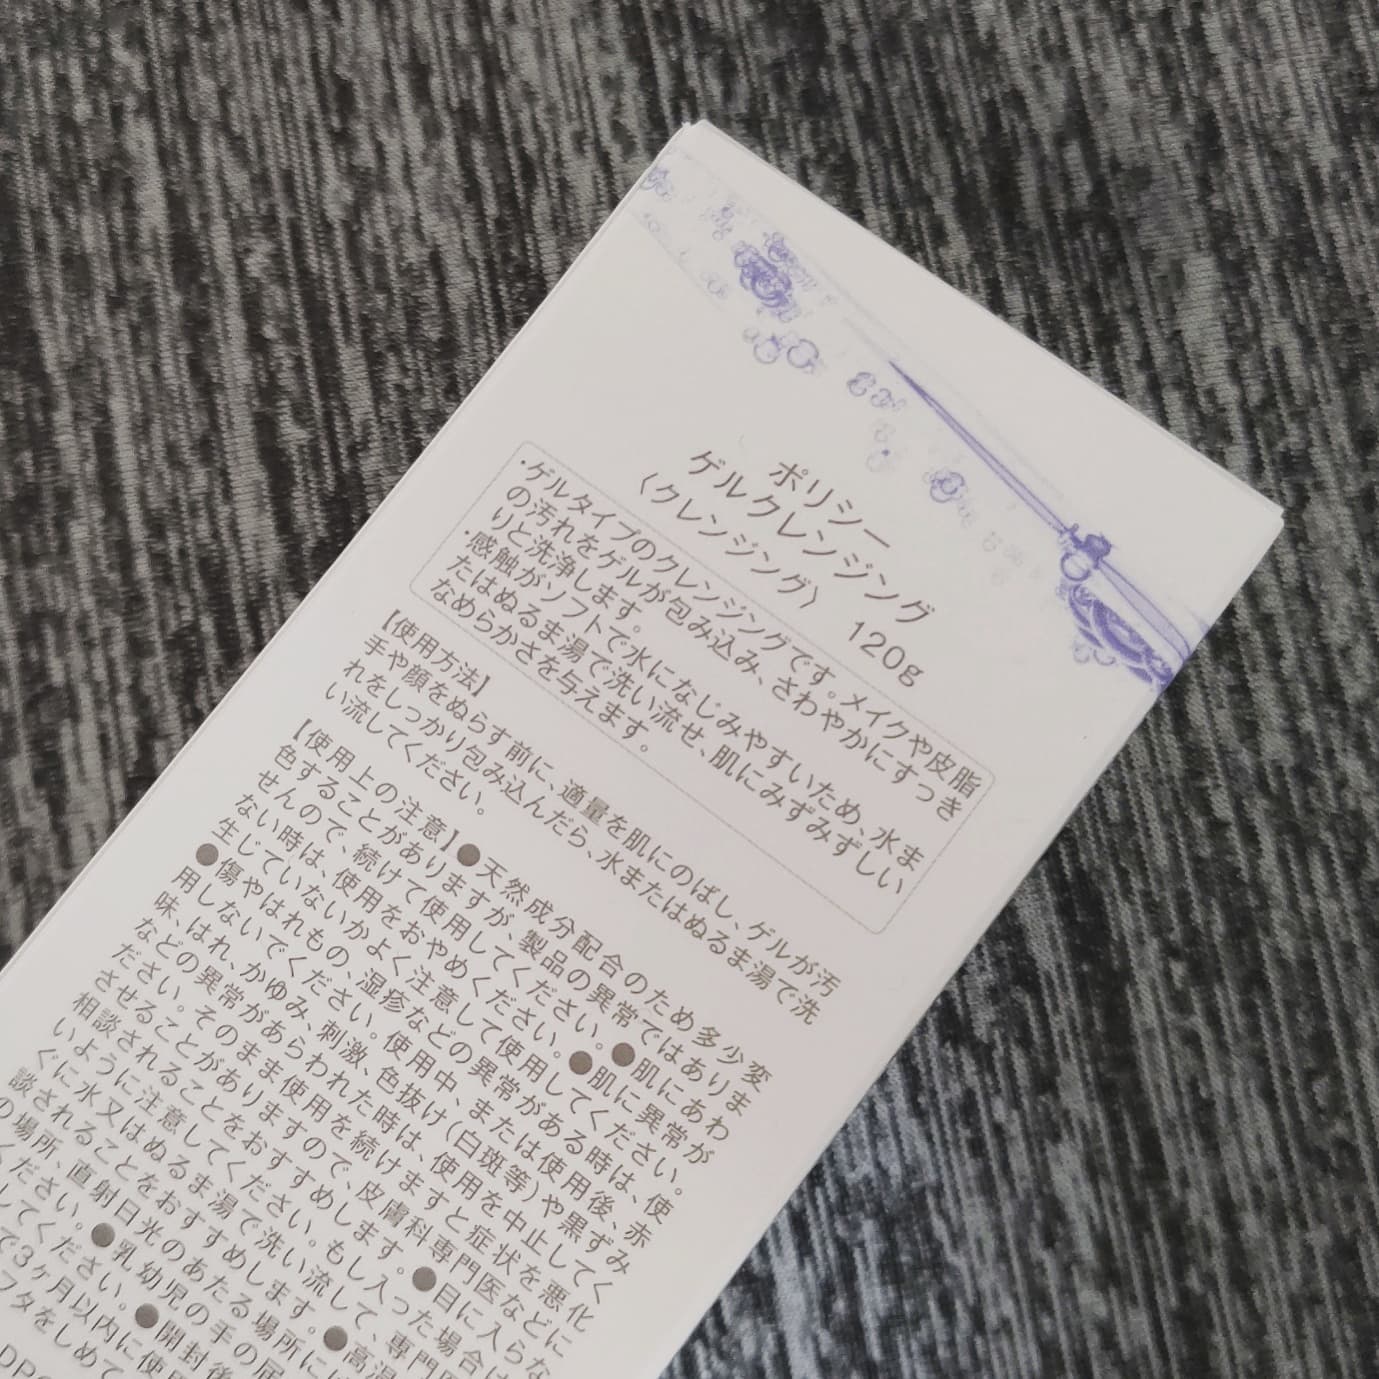 ポリシー
ゲルクレンジング
〈クレンジング〉 120g
・ゲルタイプのクレンジングです。メイクや皮脂
の汚れをゲルが包み込み、さわやかにすっき
りと洗浄します。
・感触がソフトで水になじみやすいため、水ま
たはぬるま湯で洗い流せ、肌にみずみずしい
なめらかさを与えます。
【使用方法】
手や顔をぬらす前に、適量を肌にのばし、ゲルが汚
れをしっかり包み込んだら、水またはぬるま湯で洗
い流してください。
【使用上の注意】●天然成分配合のため多少変
色することがありますが、製品の異常ではありま
せんので、続けて使用してください。●肌にあわ
ない時は、使用をおやめください。●肌に異常が
生じていないかよく注意して使用してください。
●傷やはれもの、湿疹などの異常がある時は、使
用しないでください。使用中、または使用後、赤
味、はれ、かゆみ、刺激、色抜け(白斑等)や黒ずみ
などの異常があらわれた時は、使用を中止してく
ださい。そのまま使用を続けますと症状を悪化
させることがありますので、皮膚科専門医などに
相談されることをおすすめします。●目に入らな
いように注意してください。もし入った場合は
ぐに水又はぬるま湯で洗い流して、専門医
談されることをおすすめします。●高温
の場所、直射日光のあたる場所には
ください。●乳幼児の手の届
してください。●開封後
で3ヶ月以内に使
フタをしめて